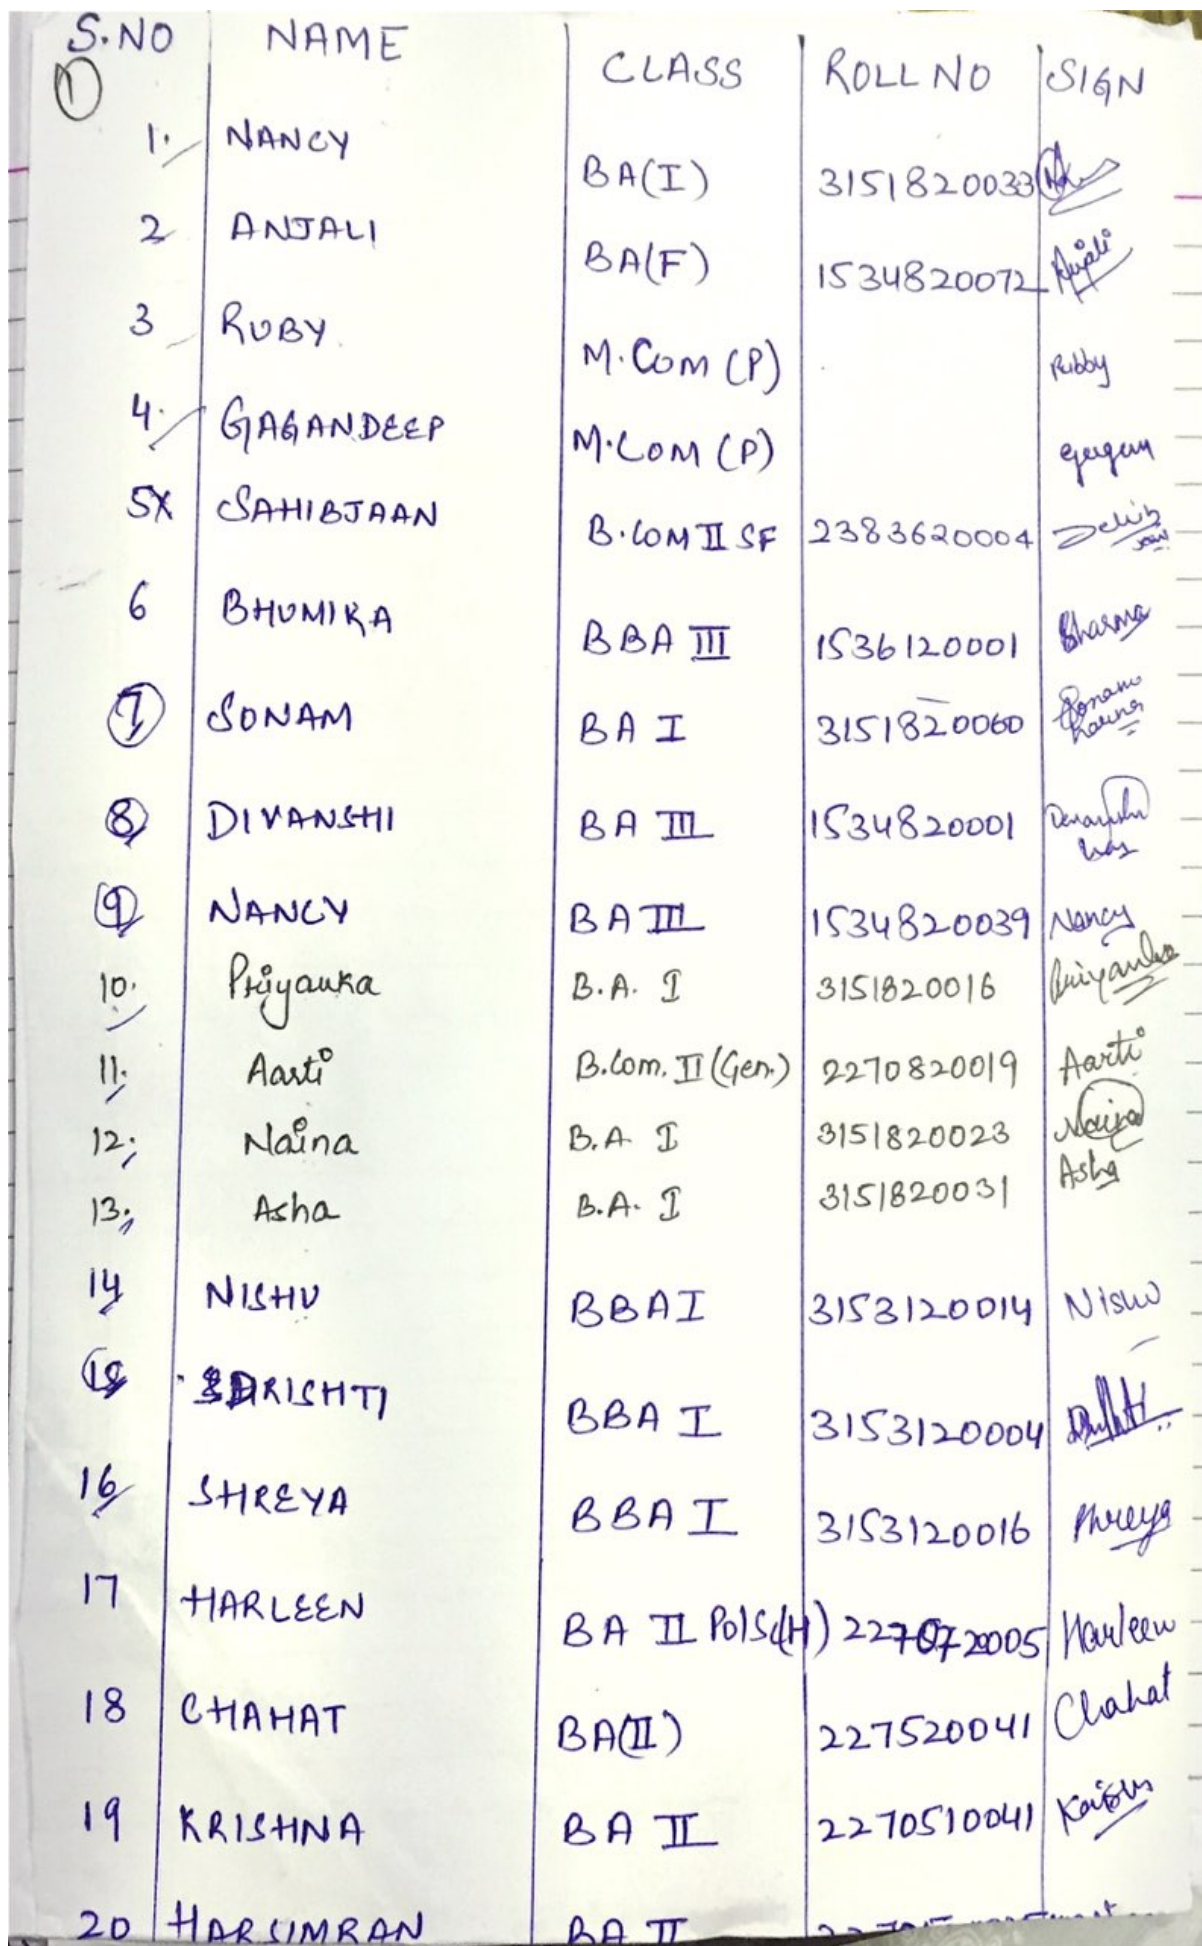 S.NO NAME CLASS ROLL NO SIGN
1
1. NANCY BA(I) 3151820033
2 ANJALI BA(F) 1534820072 Anjali
3 RUBY M.COM (P) Rubby
4. GAGANDEEP M.COM (P) gagan
5X SAHIBJAAN B.COM II SF 2383620004
6 BHUMIKA BBA III 1536120001 Bharma
7 SONAM BA I 3151820060 Sonam
8 DIVANSHI BA III 1534820001
9 NANCY BA III 1534820039 Nancy
10. Priyanka B.A. I 3151820016 Priyanka
11. Aarti B.Com. II (Gen.) 2270820019 Aarti
12. Naina B.A. I 3151820023 Naina
13. Asha B.A. I 3151820031 Asha
14 NISHU BBA I 3153120014 Nishu
15 DRISHTI BBA I 3153120004
16 SHREYA BBA I 3153120016 Shreya
17 HARLEEN BA II PolSc(H) Harleen
18 CHAHAT BA(II) 227520041 Chahat
19 KRISHNA BA II 2270510041
20 HARSIMRAN BA II